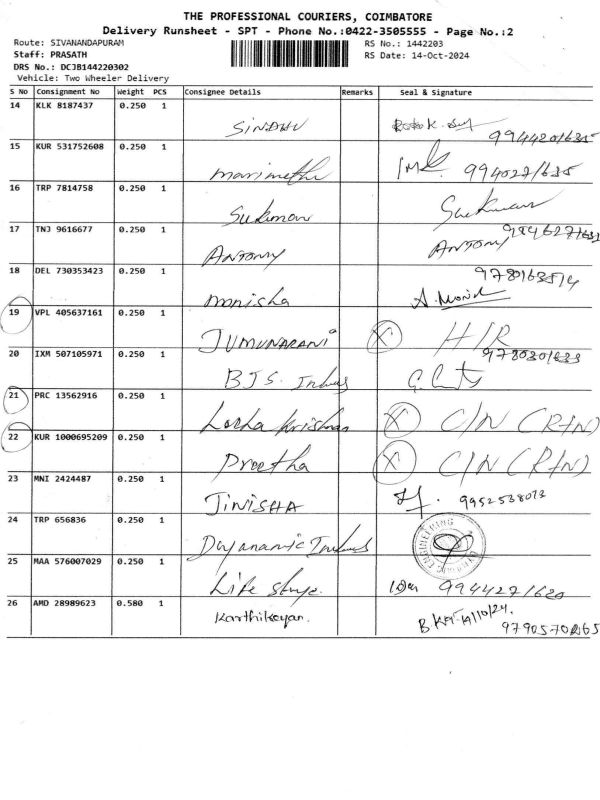 THE PROFESSIONAL COURIERS, COIMBATORE
Delivery Runsheet - SPT - Phone No.:0422-3505555 - Page No.:2
Route: SIVANANDAPURAM RS No.: 1442203
Staff: PRASATH RS Date: 14-Oct-2024
DRS No.: DCJB144220302
Vehicle: Two Wheeler Delivery
S No Consignment No Weight PCS Consignee Details Remarks Seal & Signature
14 KLK 8187437 0.250 1
SINDHU
15 KUR 531752608 0.250 1
marimuthu 9940271635
16 TRP 7814758 0.250 1
Sukumar Sukumar
17 TNJ 9616677 0.250 1
ANTONY ANTONY
18 DEL 730353423 0.250 1
monisha A. Monish
19 VPL 405637161 0.250 1
JUMUNARANI X H/R
20 IXM 507105971 0.250 1
BJS.
21 PRC 13562916 0.250 1
X C/N (RTN)
22 KUR 1000695209 0.250 1
Preetha X C/N (RTN)
23 MNI 2424487 0.250 1
JINISHA
24 TRP 656836 0.250 1
25 MAA 576007029 0.250 1
Life
26 AMD 28989623 0.580 1
Karthikeyan.